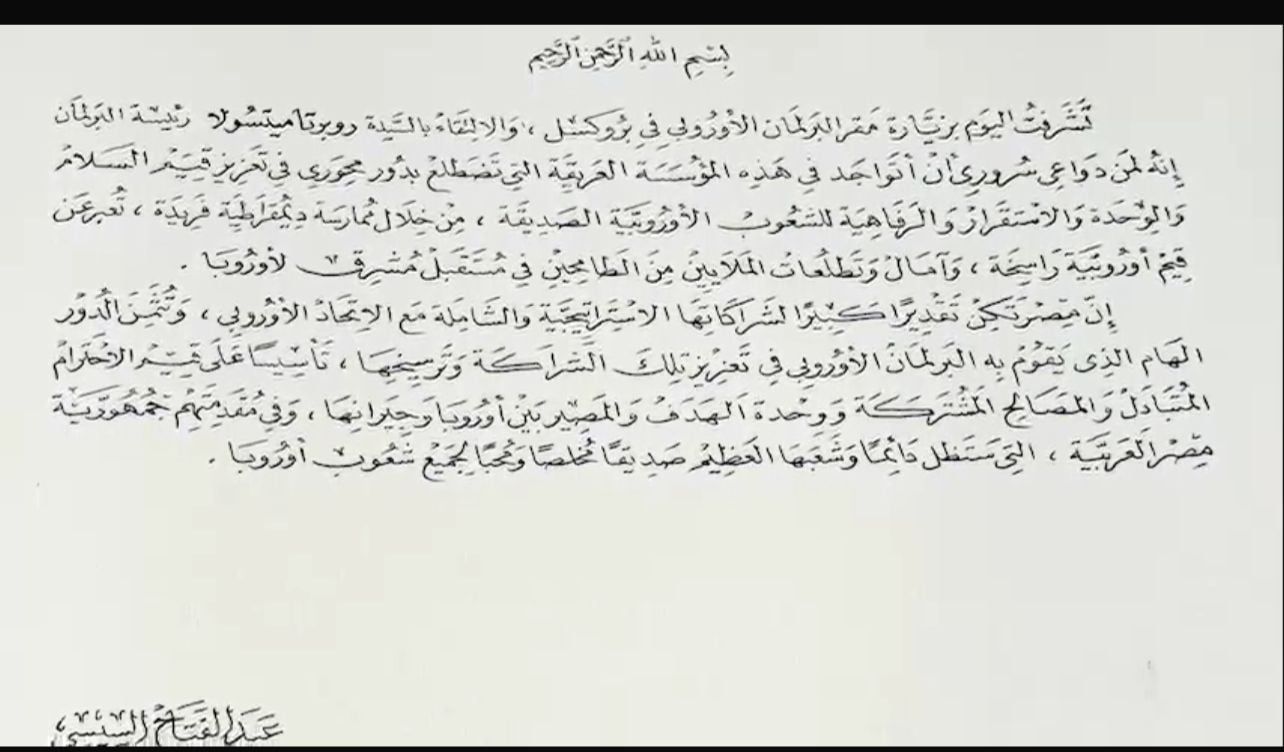 بِسْمِ اللهِ الرَّحْمٰنِ الرَّحِيمِ
تَشَرَّفْتُ اليَوْمَ بِزِيَارَة مَقَر البَرلمَان الأوُرُوبي فِي بْرُوكسْل ، وَالالتِقَاءَ بالسَّيِّدة روبرتا ميتسولا رَئيسَة البَرلمَان
إنَّهُ لَمن دَوَاعِى سُرُورِى أنْ أتَوَاجَد في هَذِه المؤُسَّسَة العَريقَة التِي تَضطَلعْ بدَور مِحوَرِي فِي تَعزِيز قيَم السَلام
وَالوِحْدَة وَالاسْتقرَار وَالرفَاهِيَة للشعُوب الأوُرُوبيَة الصَدِيقَة ، مِنْ خِلَال مُمارسَة دِيمُقرَاطيَة فَريْدَة ، تُعبر عَن
قِيَم أوُرُوبيَّة رَاسِخَة ، وَآمَال وَتَطلُعَات المَلَايينْ مِنَ الطَامِحِينْ فِي مُسْتَقبَلْ مُشرِق لأوُرُوبَا .
إنّ مِصْرَ تَكِنُ تَقْدِيرًا كَبِيرًا لشرَاكَاتِهَا الاسْترَاتِيجيَّة وَالشَامِلَة مَع الاتحَاد الأوْرُوبي ، وَتُثَمِّنَ الدَّوْر
الهَام الذِى يَقوُمُ به البَرلمَانُ الأوْرُوبي فِي تَعزيز تِلكَ الشّرَاكَة وَتَرسِيخِهَا ، تَأسِيسًا عَلَى قيَم الاحْتِرَام
المُتَبَادَلْ وَالمَصَالح المُشتَركَة وَوحْدة الهَدَف وَالمَصِير بَيْن أوُرُوبا وَجيرَانِهَا ، وَفي مُقَدِمَتِهِم جُمْهُورِيَّة
مِصْر العَرَبيَّة ، التِي سَتَظل دَائِمًا وَشَعبَهَا العَظِيْم صَدِيقًا مُخلصًا وَمُحبًا لجَمِيْع شُعُوب أوْرُوبَا .
عَبد الفَتَاح السِّيسِي